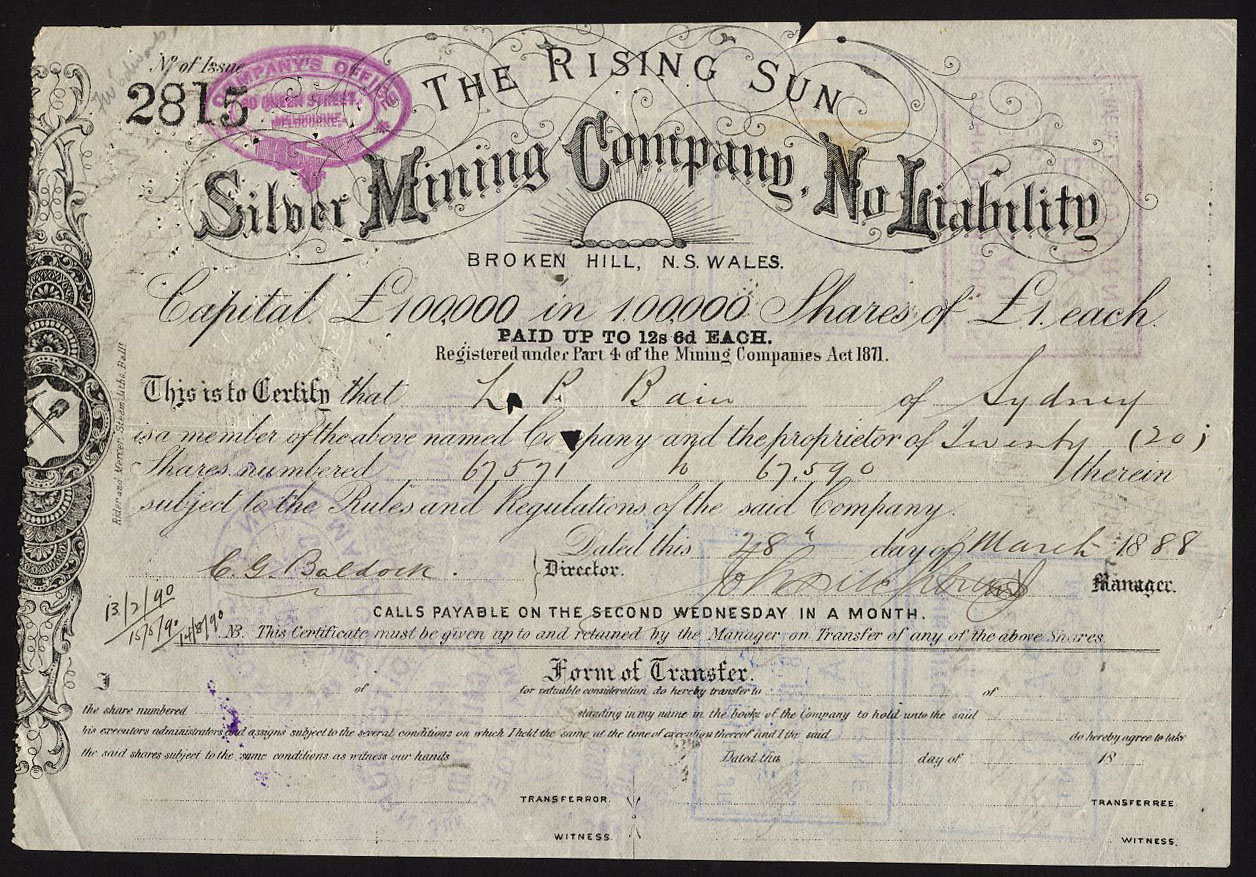 No. of Issue
2815
COMPANY'S OFFICE
QUEEN STREET,
MELBOURNE.
THE RISING SUN
Silver Mining Company, No Liability
BROKEN HILL, N.S. WALES.
Capital £100,000 in 100,000 Shares of £1. each.
PAID UP TO 12s 6d EACH.
Registered under Part 4 of the Mining Companies Act 1871.
This is to Certify that L. P. Bain of Sydney
is a member of the above named Company and the proprietor of Twenty (20)
Shares numbered 67,571 to 67,590 therein
subject to the Rules and Regulations of the said Company.
Dated this 28" day of March 1888
C. G. Baldock. Director. Manager.
CALLS PAYABLE ON THE SECOND WEDNESDAY IN A MONTH.
13/2/90
14/8/90
NB. This Certificate must be given up to and retained by the Manager on Transfer of any of the above Shares
Form of Transfer.
I of for valuable consideration do hereby transfer to of
the share numbered standing in my name in the books of the Company to hold unto the said
his executors administrators and assigns subject to the several conditions on which I held the same at the time of execution thereof and I the said do hereby agree to take
the said shares subject to the same conditions as witness our hands Dated this day of 18
TRANSFERROR. TRANSFEREE
WITNESS. WITNESS.
Rider and Mercer Steam Litho. Ballt